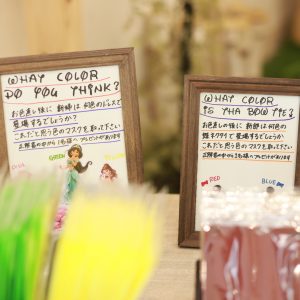 WHAT COLOR
DO YOU THINK?
お色直し後に 新婦は何色のドレスで
登場するでしょうか?
これだと思う色のマスクを取って下さい
正解者の中から1名様へプレゼントがあります
GREEN
WHAT COLOR
IS THA BOW TIE?
お色直し後に 新郎は何色の
蝶ネクタイで登場するでしょうか
これだと思う色のマスクを取って下さい
正解者の中から1名様へプレゼントがあります
RED
BLUE